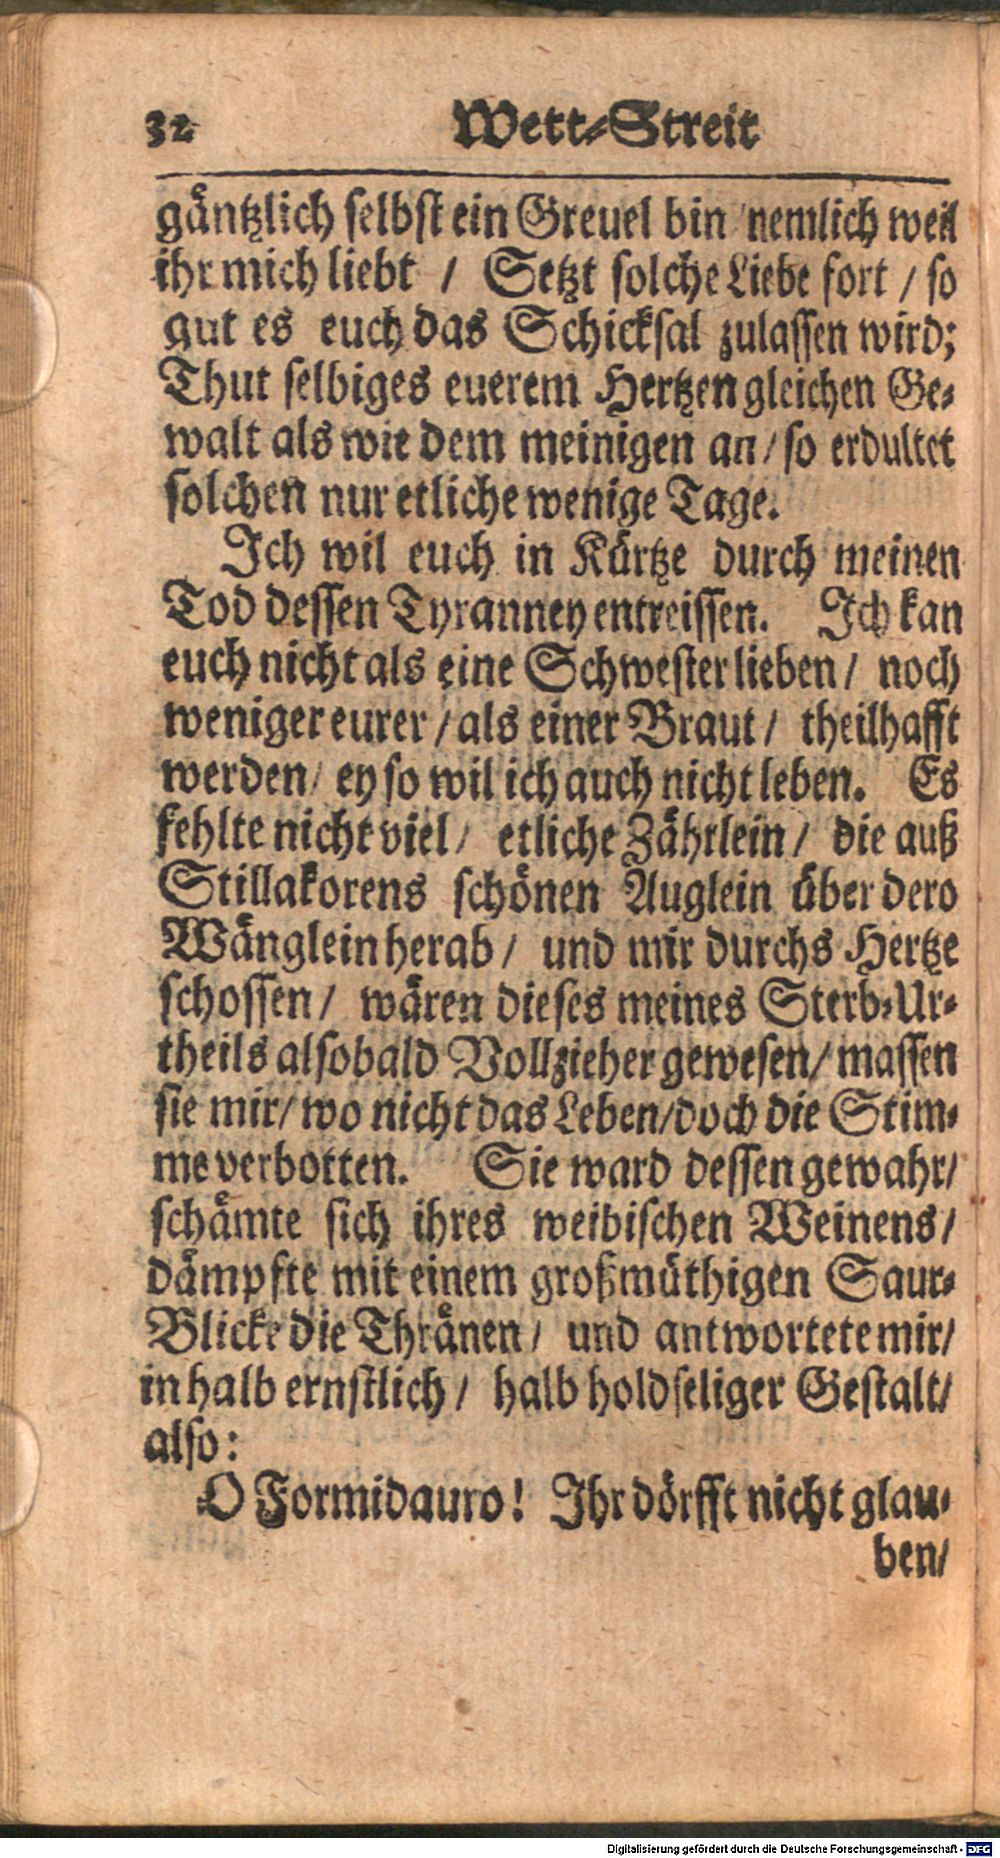 32 Wett-Streit
gäntzlich selbst ein Greuel bin nemlich weil
ihr mich liebt / Setzt solche Liebe fort / so
gut es euch das Schicksal zulassen wird;
Thut selbiges euerem Hertzen gleichen Ge-
walt als wie dem meinigen an / so erdultet
solchen nur etliche wenige Tage.
Ich wil euch in Kürtze durch meinen
Tod dessen Tyranney entreissen. Ich kan
euch nicht als eine Schwester lieben / noch
weniger eurer / als einer Braut / theilhafft
werden / ey so wil ich auch nicht leben. Es
fehlte nicht viel / etliche Zährlein / die auß
Stillakorens schönen Auglein über dero
Wänglein herab / und mir durchs Hertze
schossen / wären dieses meines Sterb-Ur-
theils alsobald Vollzieher gewesen / massen
sie mir / wo nicht das Leben / doch die Stim-
me verbotten. Sie ward dessen gewahr /
schämte sich ihres weibischen Weinens /
dämpfte mit einem großmüthigen Saur-
Blicke die Thränen / und antwortete mir /
in halb ernstlich / halb holdseliger Gestalt /
also:
O Formidauro! Ihr dörfft nicht glau-
ben /
Digitalisierung gefördert durch die Deutsche Forschungsgemeinschaft - DFG